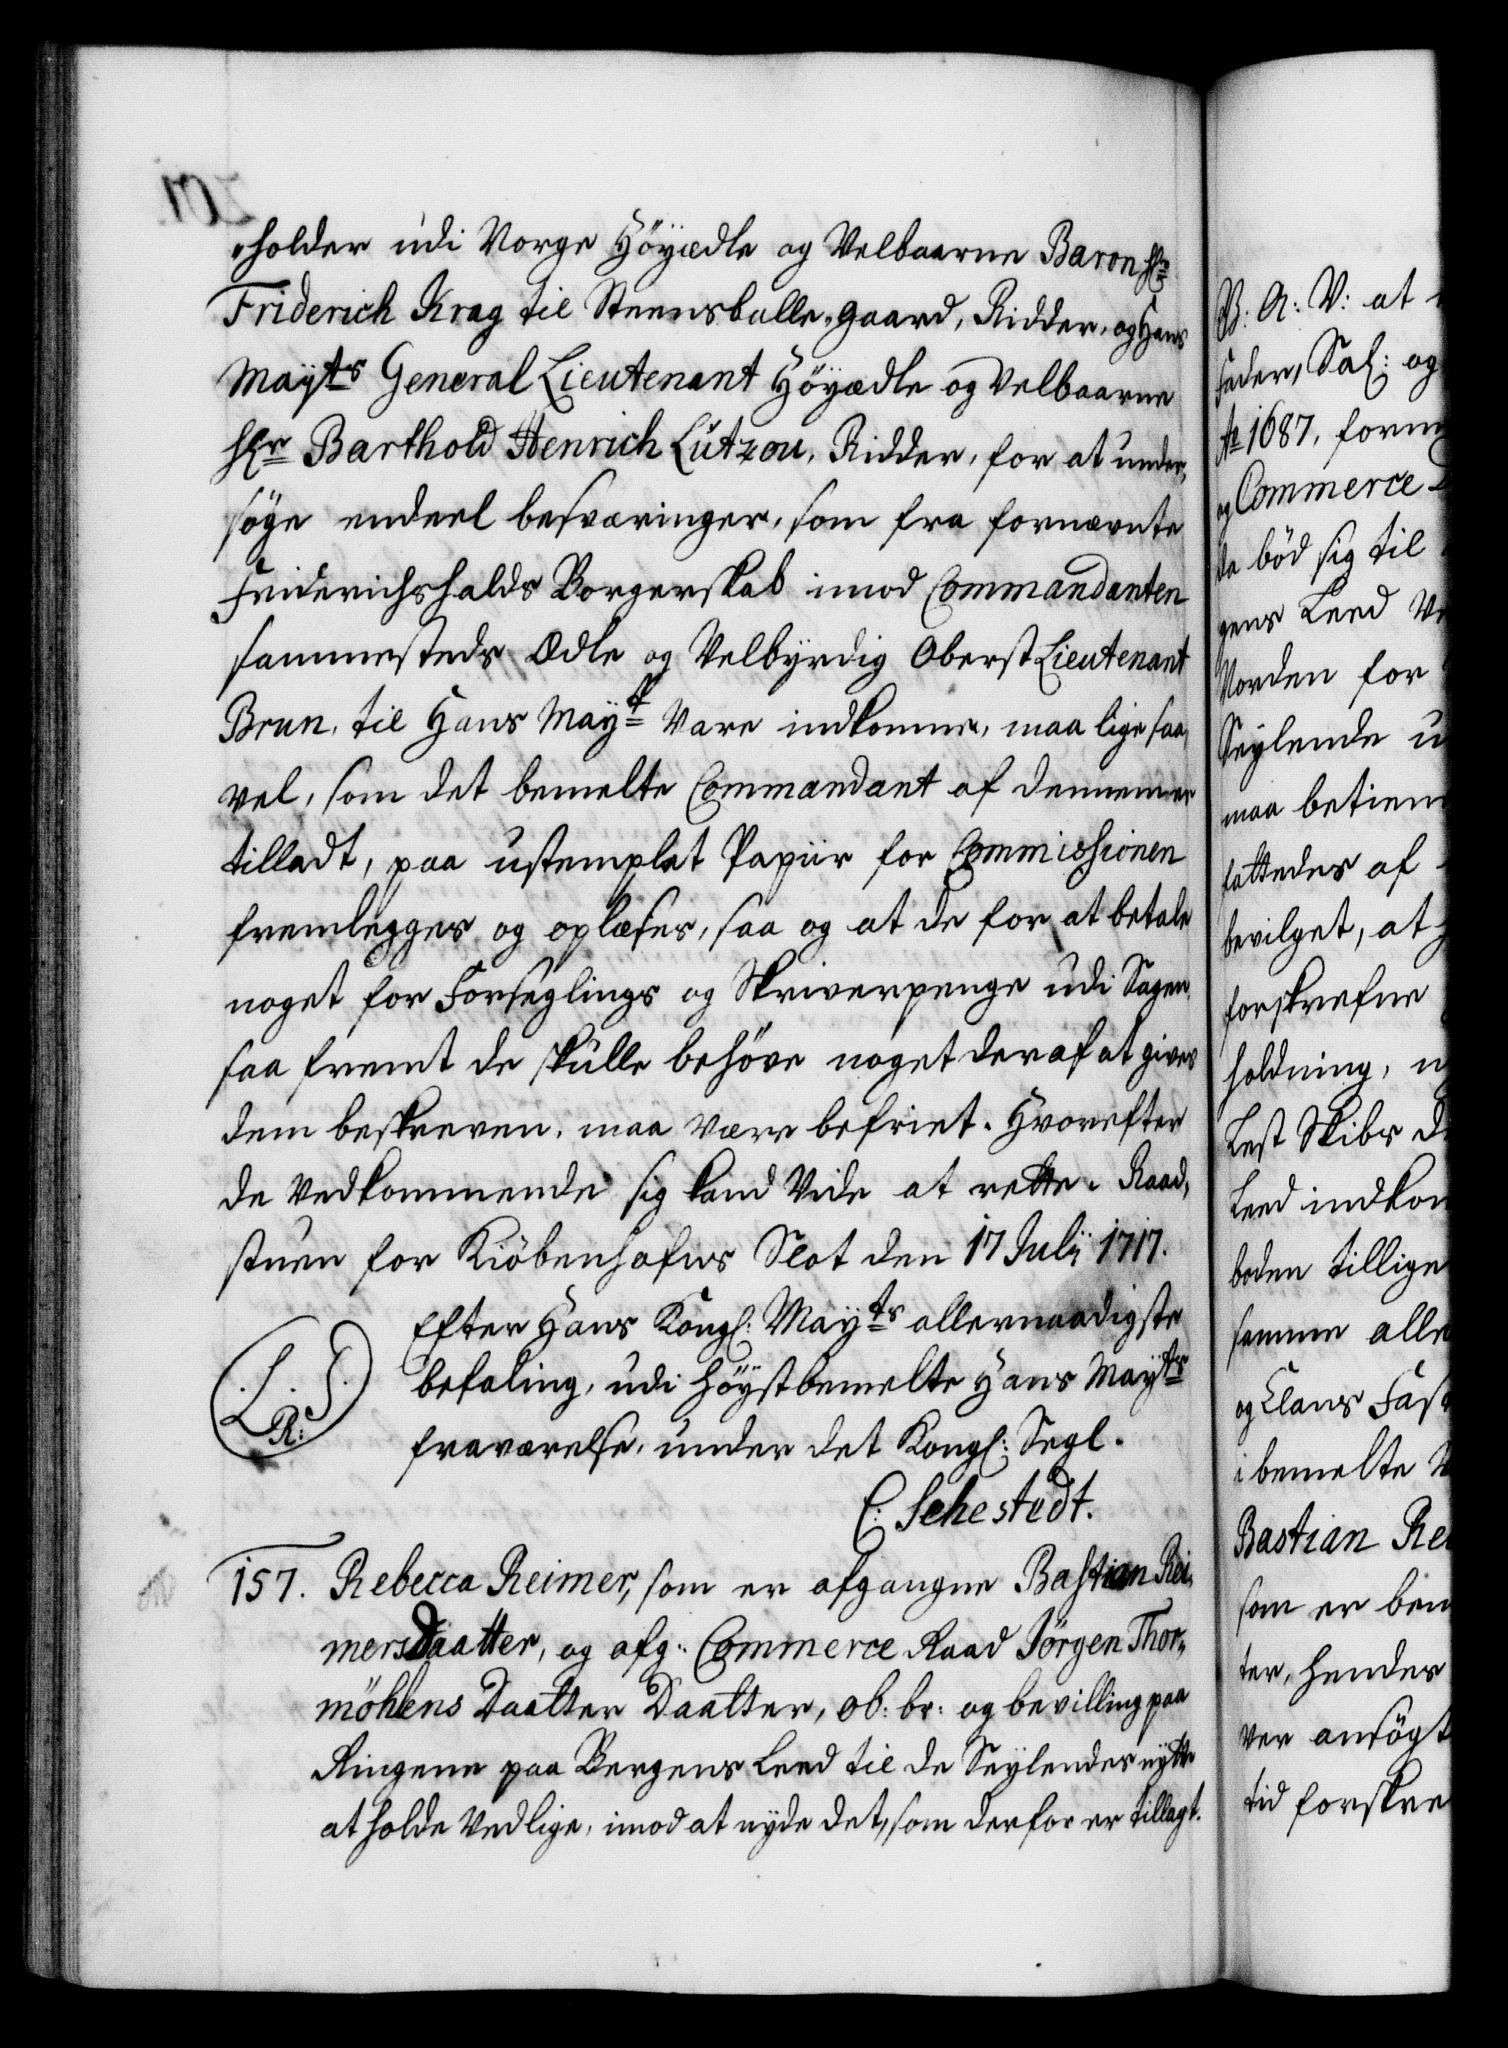 holder udi Norge Höyædle og Velbaarne Baron Hr
Friderich Krag til Steensballe-gaard, Ridder, og Hans
Mayts General Lieutenant Höyædle og Velbaarne
Hr Barthold Henrich Lützou, Ridder, for at under,
söge endeel besværinger, som fra fornævnte
Friderichshalds Borgerskab imod Commandanten
sammesteds Ædle og Velbyrdig Oberst Lieutenant
Brun, til Hans Mayt vare indkomne, maa lige saa,
vel, som det bemelte Commandant af dennem er
tilladt, paa ustemplet Papiir for Commissionen
fremlegges og oplæses, saa og at de for at betale
noget for Forseglings og Skriverpenge udi Sagen,
saa fremt de skulle behöve noget deraf at gives
dem beskreven, maa være befriet. Hvorefter
de Vedkommende sig kand Vide at rette. Raad,
stuen for Kiöbenhafns Slot den 17 Julij 1717.
Efter Hans Kongl: Mayts allernaadigste
befaling, udi Höystbemelte Hans Mayts
fraværelse, under det Kongl: Segl.
L. S.
R:
C: Sehestedt.
157. Rebecca Reimer, som er afgangne Bastian Rei,
mers Daatter, og afg: Commerce Raad Jörgen Thor,
möhlens Daatter Daatter, ob: br: og bevilling paa
Ringene paa Bergens Leed til de Seylendes nytte
at holde Vedlige, imod at nyde det, som derfor er tillagt.
B: A: V: at
fader, Sal: og
Ao 1687, form
og Commerce
da böd sig til
gens Leed
Norden for
Seylende u
maa betien
fattedes af
bevilget, at
forskrefne
holdning,
Lest Skibs
Leed indkom
boden tillige
samme alle
og Claus Fas
i bemelte
Bastian Re
som er bem
ter, hendes
ver ansögt
tid forskre